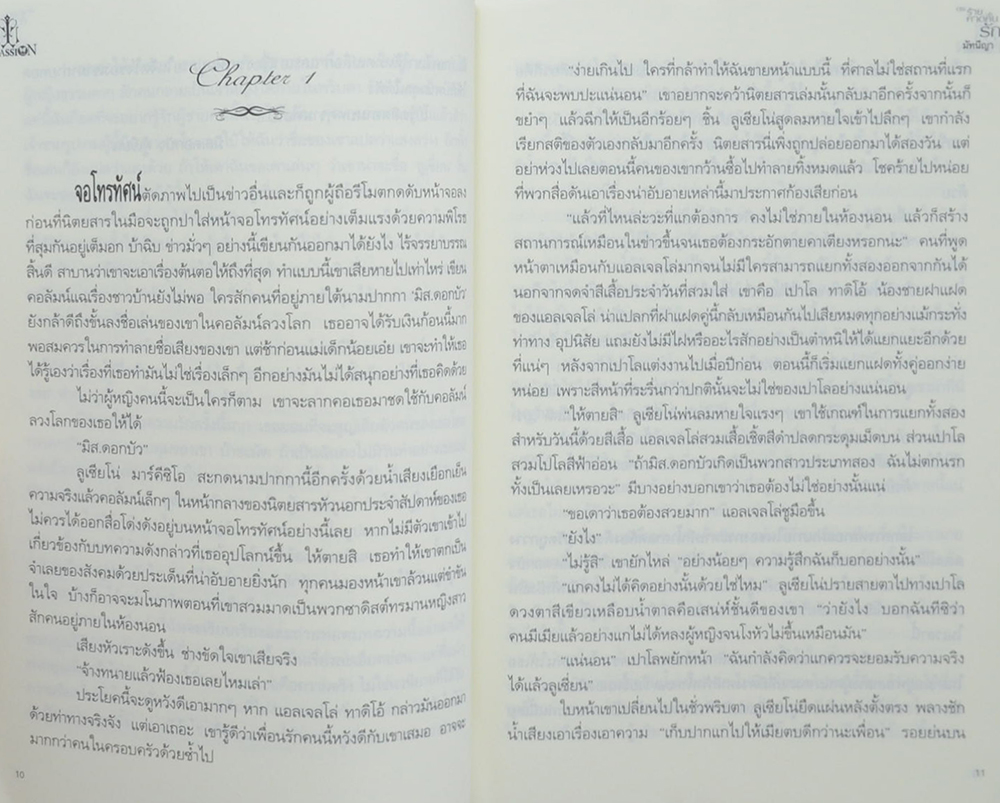 PASSION
Chapter 1
จอโทรทัศน์ตัดภาพไปเป็นข่าวอื่นและก็ถูกผู้ถือรีโมตกดดับหน้าจอลง
ก่อนที่นิตยสารในมือจะถูกปาใส่หน้าจอโทรทัศน์อย่างเต็มแรงด้วยความพิโรธ
ที่สุมกันอยู่เต็มอก บ้าฉิบ ข่าวมั่วๆ อย่างนี้เขียนกันออกมาได้ยังไง ไร้จรรยาบรรณ
สิ้นดี สาบานว่าเขาจะเอาเรื่องต้นตอให้ถึงที่สุด ทำแบบนี้เขาเสียหายไปเท่าไหร่ เขียน
คอลัมน์แฉเรื่องชาวบ้านยังไม่พอ ใครสักคนที่อยู่ภายใต้นามปากกา 'มิส.ดอกบัว'
ยังกล้าดีถึงขั้นลงชื่อเล่นของเขาในคอลัมน์ลวงโลก เธออาจได้รับเงินก้อนนี้มาก
พอสมควรในการทำลายชื่อเสียงของเขา แต่ช้าก่อนแม่เด็กน้อยเอ๋ย เขาจะทำให้เธอ
ได้รู้เองว่าเรื่องที่เธอทำมันไม่ใช่เรื่องเล็กๆ อีกอย่างมันไม่ได้สนุกอย่างที่เธอคิดด้วย
ไม่ว่าผู้หญิงคนนี้จะเป็นใครก็ตาม เขาจะลากคอเธอมาชดใช้กับคอลัมน์
ลวงโลกของเธอให้ได้
"มิส.ดอกบัว"
ลูเซียโน่ มาร์ดีซิโอ สะกดนามปากกานี้อีกครั้งด้วยน้ำเสียงเยือกเย็น
ความจริงแล้วคอลัมน์เล็กๆ ในหน้ากลางของนิตยสารหัวนอกประจำสัปดาห์ของเธอ
ไม่ควรได้ออกสื่อโด่งดังอยู่บนหน้าจอโทรทัศน์อย่างนี้เลย หากไม่มีตัวเขาเข้าไป
เกี่ยวข้องกับบทความดังกล่าวที่เธออุปโลกน์ขึ้น ให้ตายสิ เธอทำให้เขาตกเป็น
จำเลยของสังคมด้วยประเด็นที่น่าอับอายยิ่งนัก ทุกคนมองหน้าเขาล้วนแต่ขำขัน
ในใจ บ้างก็อาจจะมโนภาพตอนที่เขาสวมมาดเป็นพวกซาดิสต์ทรมานหญิงสาว
สักคนอยู่ภายในห้องนอน
เสียงหัวเราะดังขึ้น ช่างขัดใจเขาเสียจริง
"จ้างทนายแล้วฟ้องเธอเลยไหมเล่า"
ประโยคนี้จะดูหวังดีเอามากๆ หาก แอลเจลโล่ ทาดิโอ้ กล่าวมันออกมา
ด้วยท่าทางจริงจัง แต่เอาเถอะ เขารู้ดีว่าเพื่อนรักคนนี้หวังดีกับเขาเสมอ อาจจะ
มากกว่าคนในครอบครัวด้วยซ้ำไป
10
รัก
มัทนีญา
"ง่ายเกินไป ใครที่กล้าทำให้ฉันขายหน้าแบบนี้ ที่ศาลไม่ใช่สถานที่แรก
ที่ฉันจะพบปะแน่นอน" เขาอยากจะคว้านิตยสารเล่มนั้นกลับมาอีกครั้งจากนั้นก็
ขยำๆ แล้วฉีกให้เป็นอีกร้อยๆ ชิ้น ลูเซียโน่สูดลมหายใจเข้าไปลึกๆ เขากำลัง
เรียกสติของตัวเองกลับมาอีกครั้ง นิตยสารนี่เพิ่งถูกปล่อยออกมาได้สองวัน แต่
อย่าห่วงไปเลยตอนนี้คนของเขากว้านซื้อไปทำลายทิ้งหมดแล้ว โชคร้ายไปหน่อย
ที่พวกสื่อดันเอาเรื่องน่าอับอายเหล่านี้มาประกาศก้องเสียก่อน
"แล้วที่ไหนล่ะวะที่แกต้องการ คงไม่ใช่ภายในห้องนอน แล้วก็สร้าง
สถานการณ์เหมือนในข่าวขึ้นจนเธอต้องกระอักตายคาเตียงหรอกนะ" คนที่พูด
หน้าตาเหมือนกับแอลเจลโล่มากจนไม่มีใครสามารถแยกทั้งสองออกจากกันได้
นอกจากจดจำสีเสื้อประจำวันที่สวมใส่ เขาคือ เปาโล ทาดิโอ้ น้องชายฝาแฝด
ของแอลเจลโล่ น่าแปลกที่ฝาแฝดคู่นี้กลับเหมือนกันไปเสียหมดทุกอย่างแม้กระทั่ง
ท่าทาง อุปนิสัย แถมยังไม่มีไฝหรืออะไรสักอย่างเป็นตำหนิให้ได้แยกแยะอีกด้วย
ที่แน่ๆ หลังจากเปาโลแต่งงานไปเมื่อปีก่อน ตอนนี้ก็เริ่มแยกแฝดทั้งคู่ออกง่าย
หน่อย เพราะสีหน้าที่ระรื่นกว่าปกตินั้นจะไม่ใช่ของเปาโลอย่างแน่นอน
"ให้ตายสิ" ลูเซียโน่พ่นลมหายใจแรงๆ เขาใช้เกณฑ์ในการแยกทั้งสอง
สำหรับวันนี้ด้วยสีเสื้อ แอลเจลโล่สวมเสื้อเชิ้ตสีดำปลดกระดุมเม็ดบน ส่วนเปาโล
สวมโปโลสีฟ้าอ่อน "ถ้ามิส.ดอกบัวเกิดเป็นพวกสาวประเภทสอง ฉันไม่ตกนรก
ทั้งเป็นเลยเหรอวะ" มีบางอย่างบอกเขาว่าเธอต้องไม่ใช่อย่างนั้นแน่
"ขอเดาว่าเธอต้องสวยมาก" แอลเจลโล่ชูมือขึ้น
"ยังไง"
"ไม่รู้สิ" เขายักไหล่ "อย่างน้อยๆ ความรู้สึกฉันก็บอกอย่างนั้น"
"แกคงไม่ได้คิดอย่างนั้นด้วยใช่ไหม" ลูเซียโน่ปรายสายตาไปทางเปาโล
ดวงตาสีเขียวเหลือบน้ำตาลคือเสน่ห์ชั้นดีของเขา "ว่ายังไง บอกฉันทีซิว่า
คนมีเมียแล้วอย่างแกไม่ได้หลงผู้หญิงจนโงหัวไม่ขึ้นเหมือนมัน"
"แน่นอน" เปาโลพยักหน้า "ฉันกำลังคิดว่าแกควรจะยอมรับความจริง
ได้แล้วลูเซี่ยน"
ใบหน้าเขาเปลี่ยนไปในชั่วพริบตา ลูเซียโน่ยืดแผ่นหลังตั้งตรง พลางชัก
น้ำเสียงเอาเรื่องเอาความ "เก็บปากแกไปให้เมียตบดีกว่านะเพื่อน" รอยย่นบน
11